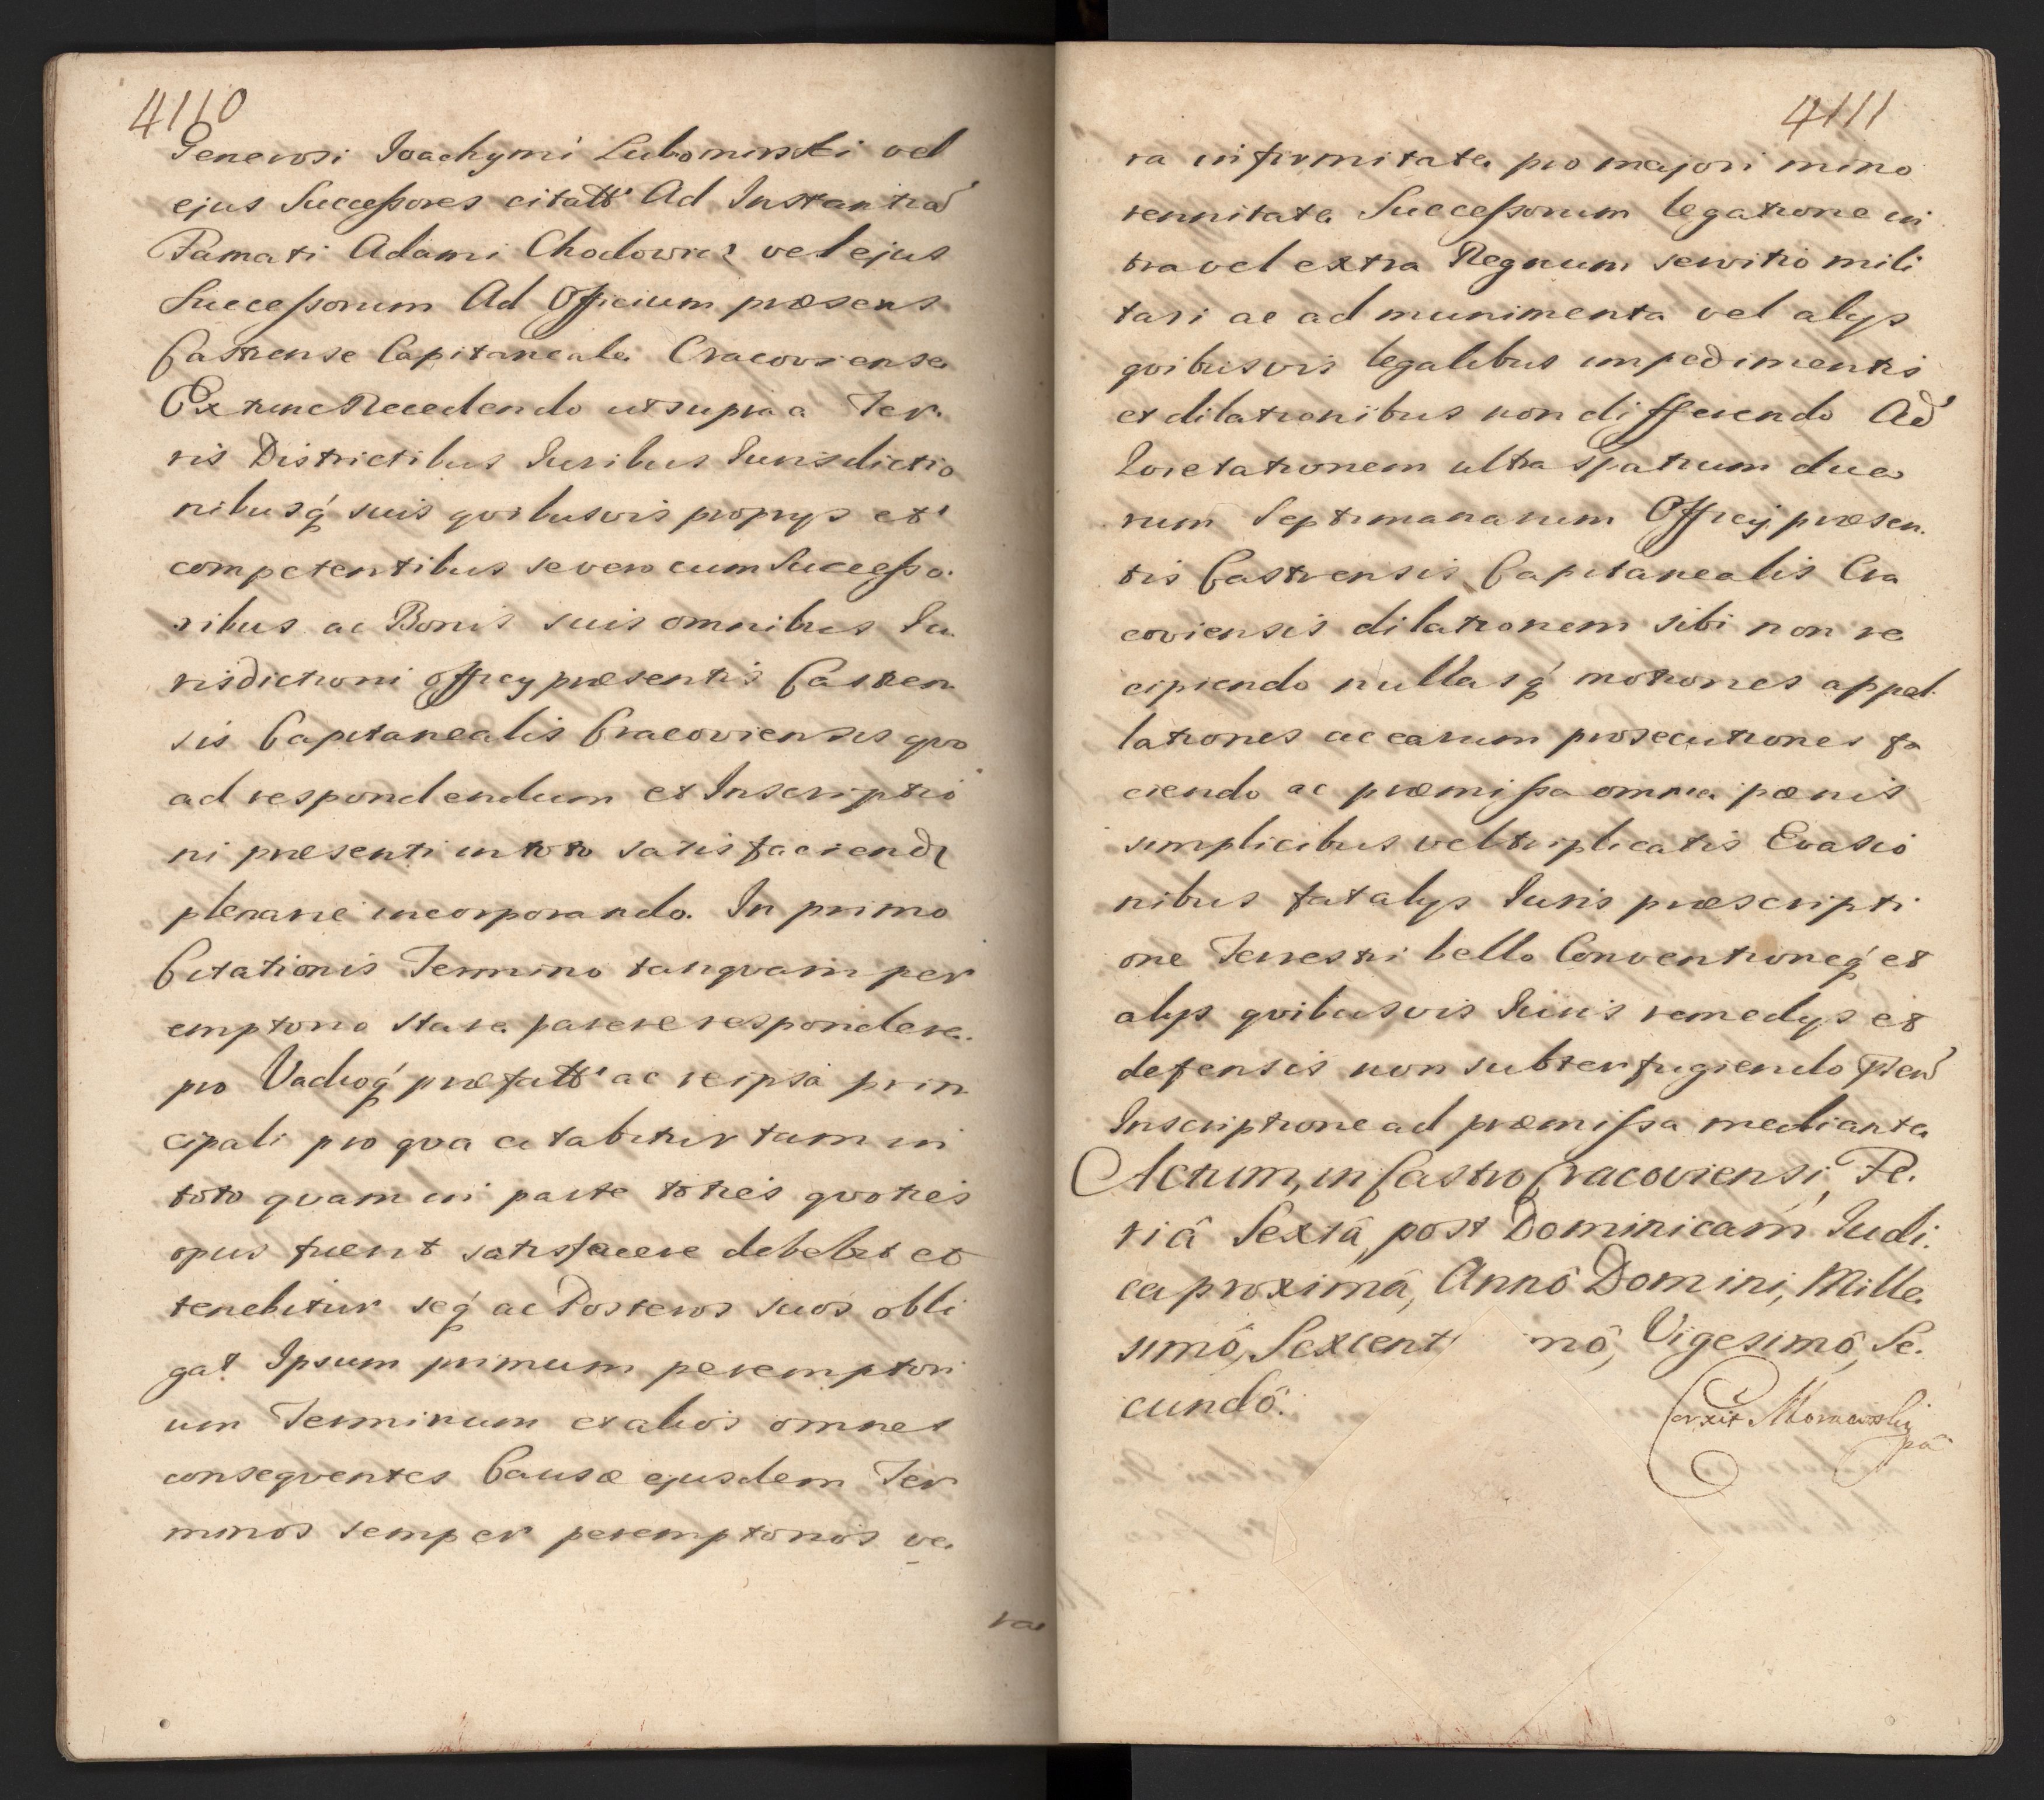 4110
Generosi Joachymi Lubomirski vel
ejus Successores citatt' Ad Instantiã
Famati Adami Chodowicz vel ejus
Successorum Ad Officium præsens
Castrense Capitaneale Cracoviense
Extunc Recedendo ut supra a Ter
ris Districtibus Juribus Jurisdictio
nibusq́ suis qvibusvis proprys et
competentibus se vero cum Successo.
ribus ac Bonis suis omnibus Ju
risdictioni officy præsentis Castren
sis Capitanealis Cracoviensis qvo
ad respondendum et Inscriptio
ni præsenti in toto satisfaciend
plenarie incorporando. In primo
Citationis Termino tanqvam per
emptorio stare parere respondere.
pro Vadioq́ præfatt' ac reipsa prin
cipali pro qva citabitur tam in
toto qvam in parte toties qvoties
opus fuerit satisfacere debebit et
tenebitur seq́ ac Posteros suos obli
gat Ipsum primum peremptori
um Terminum et alios omnes
conseqventes Causæ ejusdem Ter
minos semper peremptorios ve
ra
4111
ra infirmitate pro majori mino
rennitate Successorum legatione in
tra vel extra Regnum servitio mili
tari ac ad munimenta vel alys
qvibusvis legalibus impedimentis
et dilationibus non differendo Ad
Loretationem ultra spatium dua
rum Septimanarum Officy præsen.
tis Castrensis Capitanealis Cra
coviensis dilationem sibi non re
cipiendo nullasq́ motiones appel
lationes ac earum prosecutiones fa
ciendo ac præmissa omnia pænis
simplicibus vel triplicatis Evasio
nibus fatalys Juris præscripti
one Terrestri bello Conventioneq́ et
alys qvibusvis Juris remedys et
defensis non subterfugiendo
Inscriptione ad præmissa mediante
Actum, in Castro Cracoviensi, Fe.
riâ Sextâ, post Dominicam Judi.
ca proximâ, Annô Domini, Mille
simô, Sexcent nô, Vigesimô, Se.
cundô.
Corxit Morawski